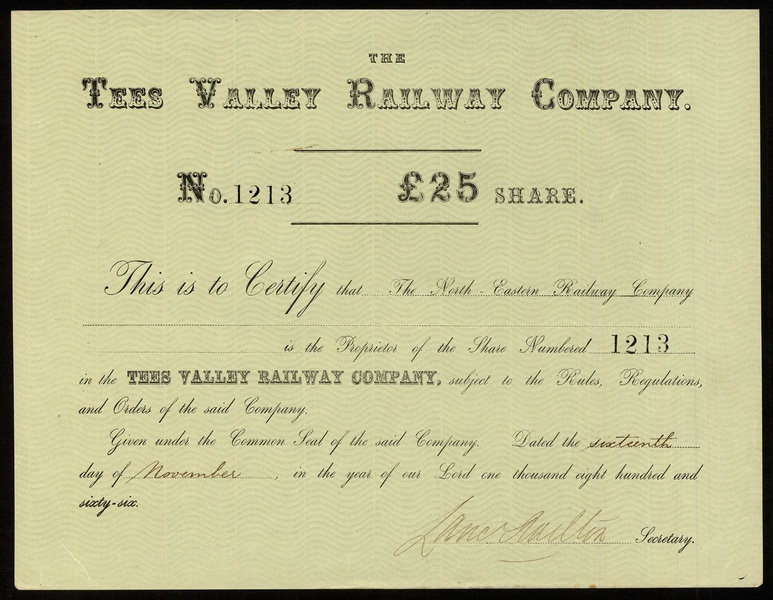 THE
TEES VALLEY RAILWAY COMPANY.
No. 1213 £25 SHARE.
This is to Certify that The North-Eastern Railway Company
is the Proprietor of the Share Numbered 1213
in the TEES VALLEY RAILWAY COMPANY, subject to the Rules, Regulations,
and Orders of the said Company.
Given under the Common Seal of the said Company. Dated the sixteenth
day of November, in the year of our Lord one thousand eight hundred and
sixty-six.
Secretary.